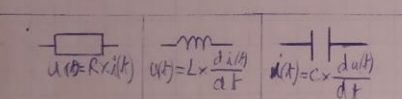 u(t)=R×i(t)
u(t)=L×di(t)/dt
i(t)=C×du(t)/dt